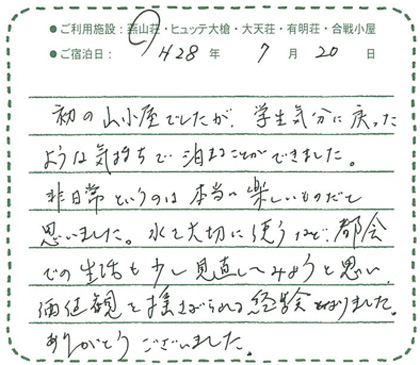 ●ご利用施設：燕山荘・ヒュッテ大槍・大天荘・有明荘・合戦小屋
●ご宿泊日： H28 年 7 月 20 日
初の山小屋でしたが、学生気分に戻った
ような気持ちで泊まることができました。
非日常というのは本当に楽しいものだと
思いました。水を大切に使うなど、都会
での生活も少し見直してみようと思い、
価値観を揺さぶられる経験となりました。
ありがとうございました。